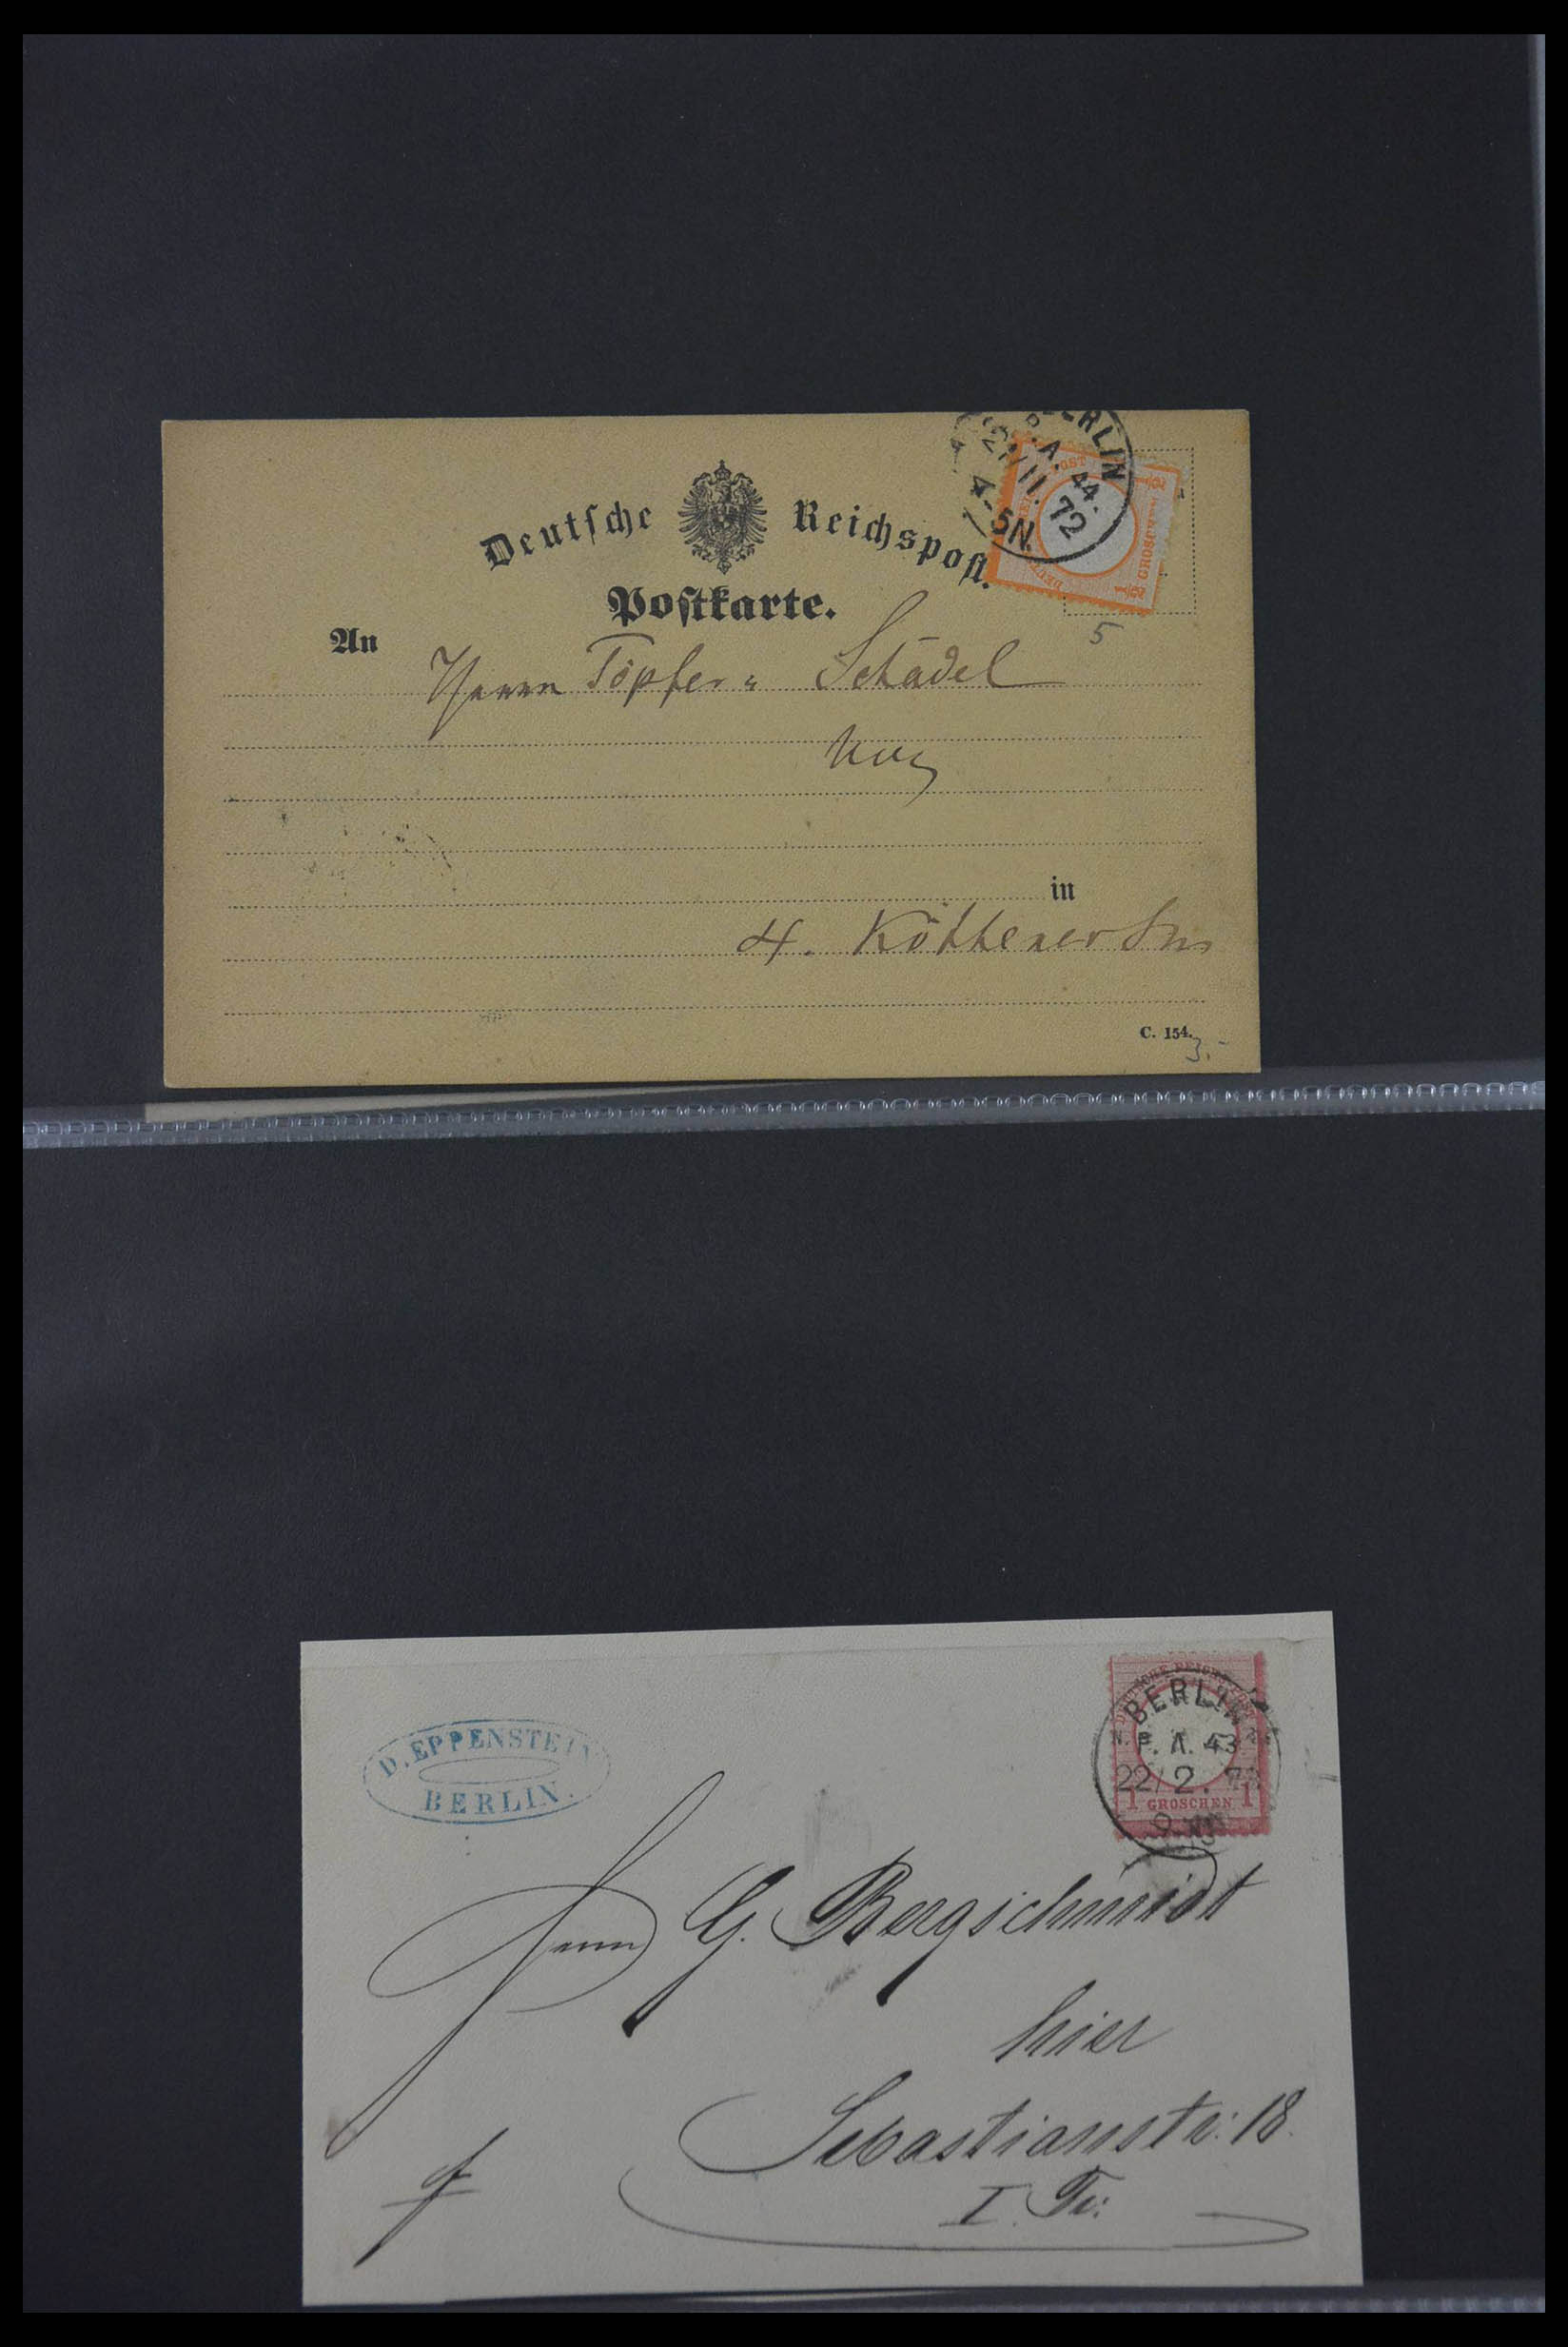 Deutsche Reichspost.
Postkarte.
BERLIN
P.A. 44.
21 11. 72
4-5N.
½ GROSCHEN ½
5
An
Herrn Töpfer u Schädel
in
4. Köthener Str
C. 154.
3.-
D. EPPENSTEIN
BERLIN.
DEUTSCHE REICHS-POST
BERLIN
P.A. 43
22/2. 73
1 GROSCHEN 1
Herrn G. Bergschmidt
hier
Sebastianstr: 18.
I. Tr: